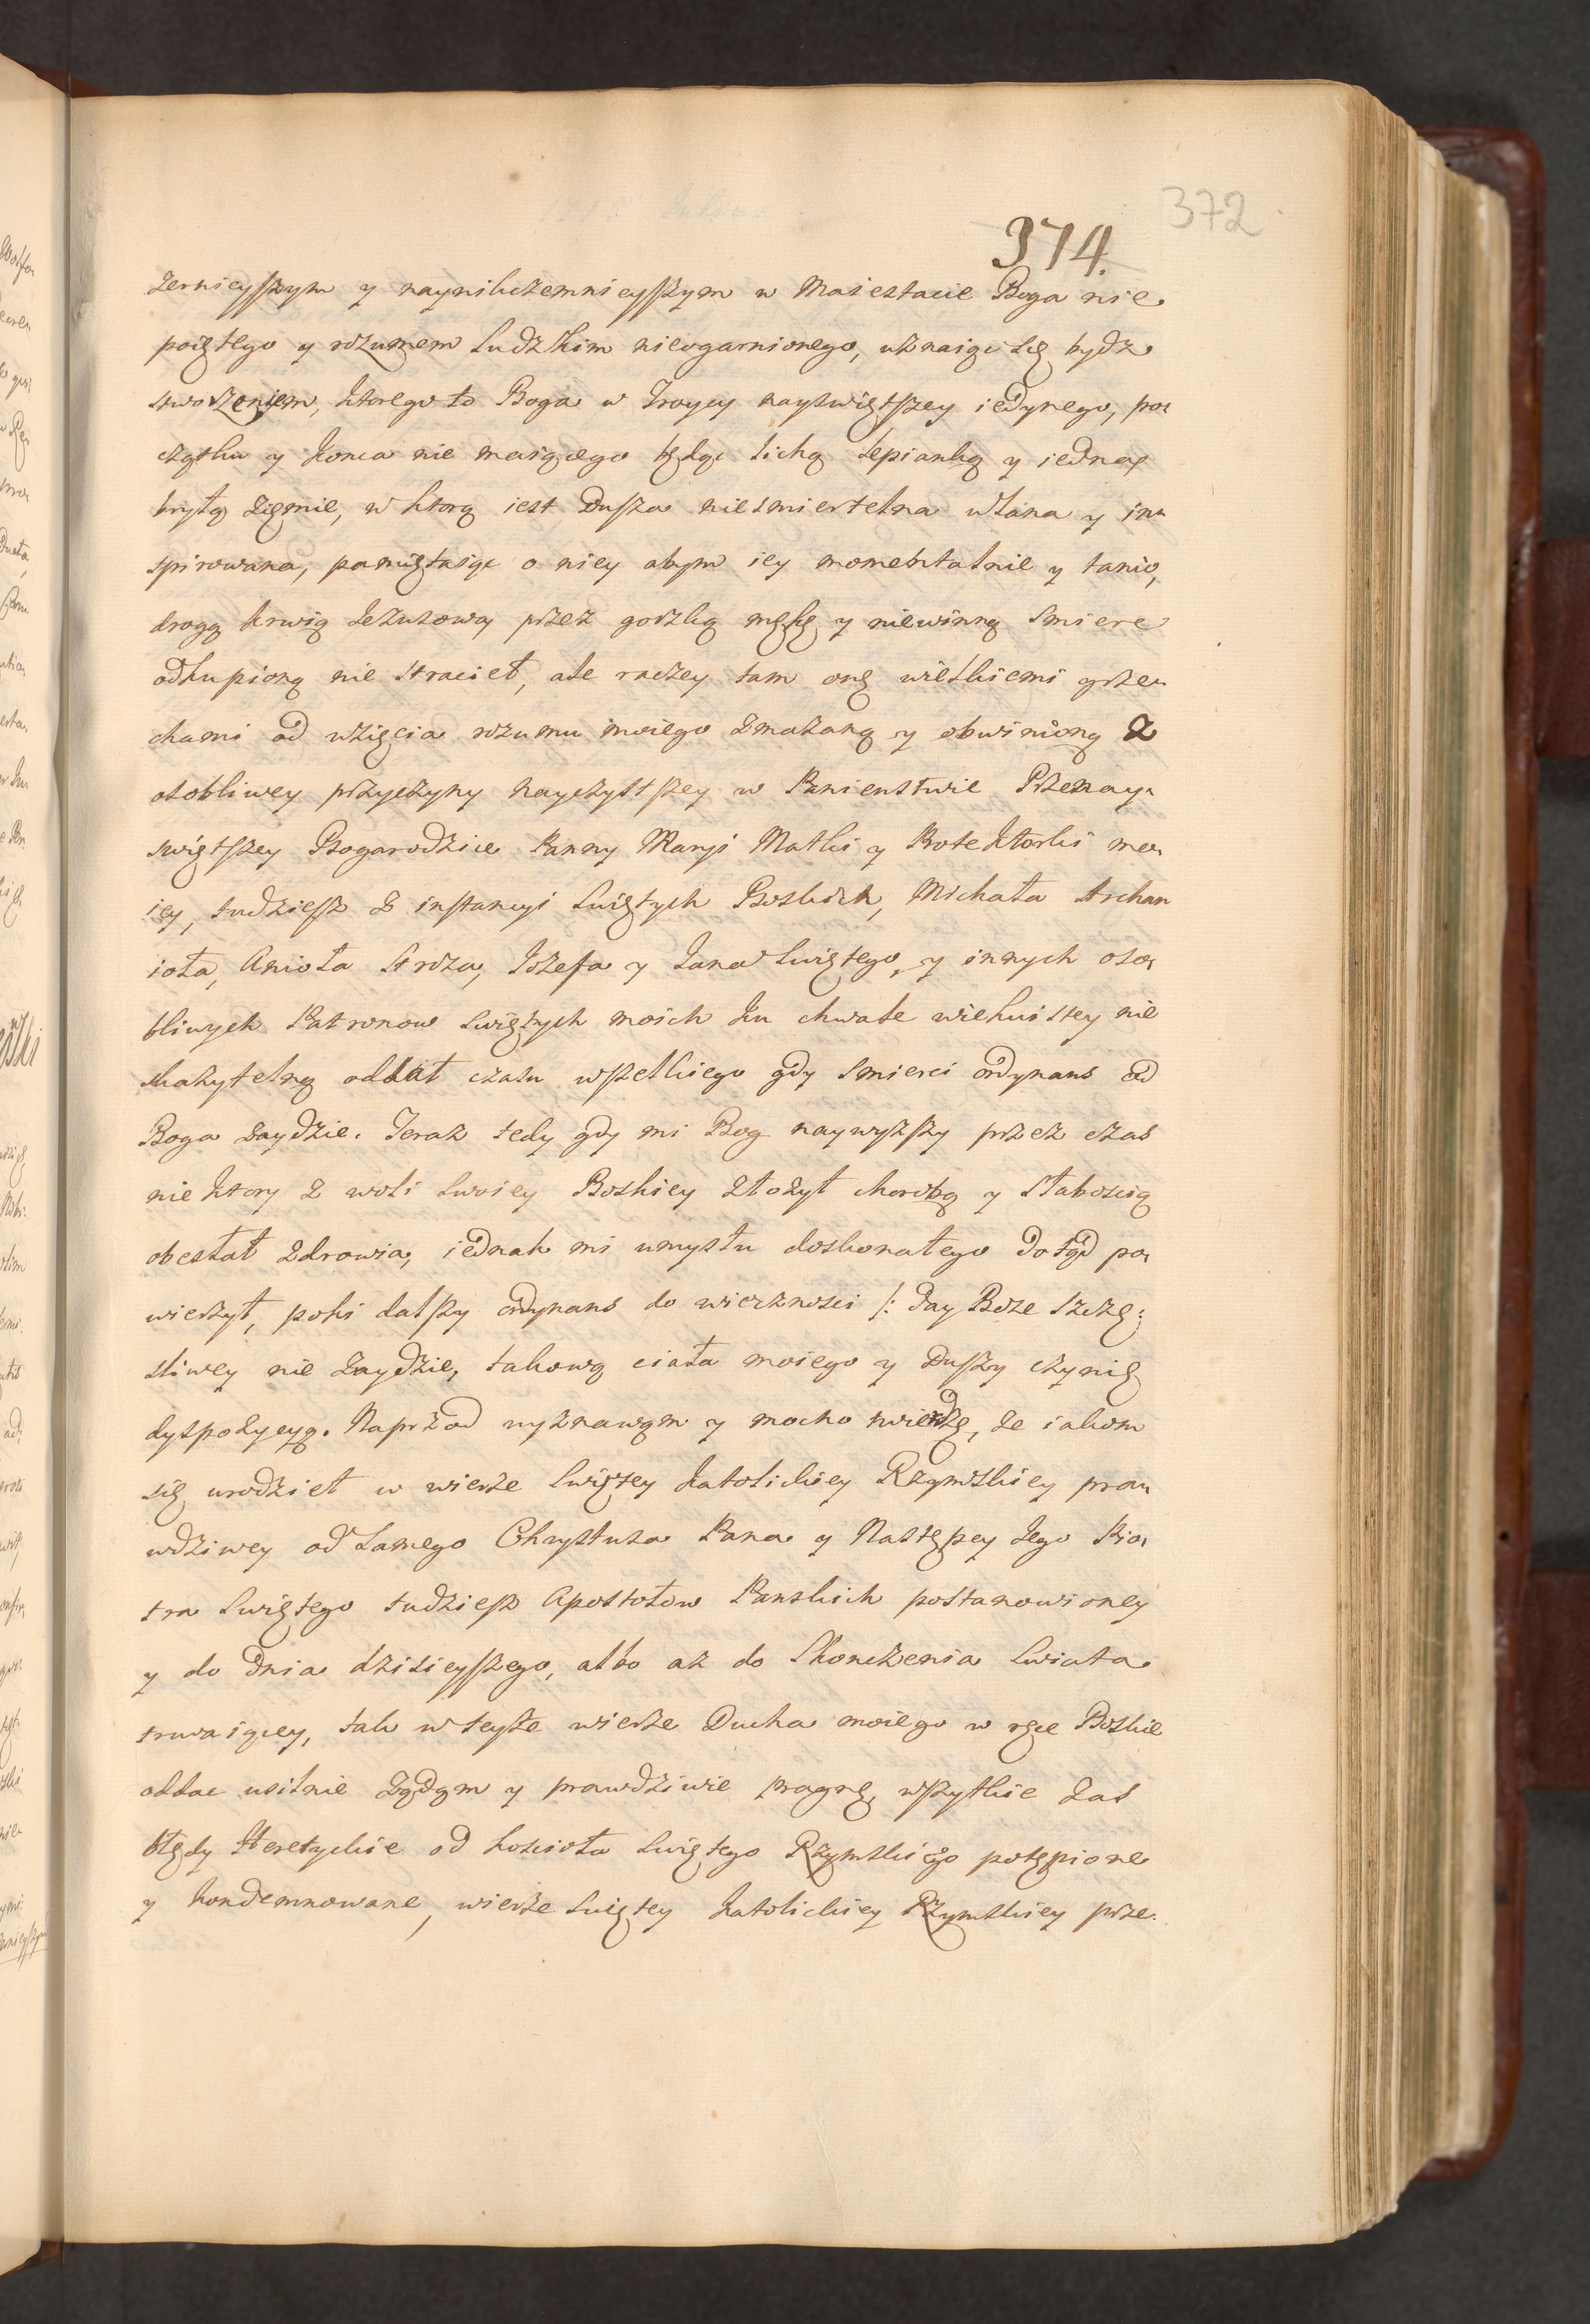 372
374.
zernieyszym y naynikczemnieyszym w Maiestacie Boga nie
poiętego y rozumem Ludzkim nieogarnionego, uznaiąc się bydz
stworzeniem, ktorego to Boga w Troycy nayswiętszey iedynego, po
czątku y konca nie maiącego będąc lichą lepianką y iedną
bryłą ziemie, w ktorą iest Dusza niesmiertelna wlana y in
spirowana, pamiętaiąc o niey abym iey momentalnie y tanio,
drogą krwią Jezusową przez gorzką mękę y niewinną Smierc
odkupioną nie stracieł, ale raczey tam onę wielkiemi grze
chami od wzięcia rozumu moiego zmazaną y obwinioną z
osobliwey przyczyny nayczystszey w Panienstwie Przenay
swiętszey Bogarodzice Panny Maryi Matki y Protektorki mo
iey, tudziesz z instancyi Swiętych Boskich, Michała Archan
ioła, Anioła Stroza, Jozefa y Jana Swiętego, y innych oso
bliwych Patronow Swiętych moich ku chwale wiekuistey nie
skazytelną oddał czasu wszelkiego gdy Smierci ordynans od
Boga zaydzie. Teraz tedy gdy mi Bog naywyzszy przez czas
niektory z woli Swoiey Boskiey złozył chorobą y słaboscią
obesłał zdrowia, iednak mi umysłu doskonałego dotąd po
wierzył, poki dalszy ordynans do wiecznosci /: day Boze szczę:
sliwey nie zaydzie, takową ciała moiego y Duszy czynię
dyspozycyą. Naprzod wyznawam y mocno twierdzę, ze iakom
się urodzieł w wierze Swiętey Katolickiey Rzymskiey praw
wdziwey od Samego Chrystusa Pana y Następcy Jego Pio
tra Swiętego tudziesz Apostołow Panskich postanowioney
y do dnia dzisieyszego, albo az do Skonczenia Swiata
trwaiącey, tak w teyze wierze Ducha moiego w ręce Boskie
oddac usilnie ządam y prawdziwie pragnę, wszytkie zas
błędy Heretyckie od koscioła Swiętego Rzymskiego potępione
y kondemnowane, wierze Swiętey Katolickiey Rzymskiey prze